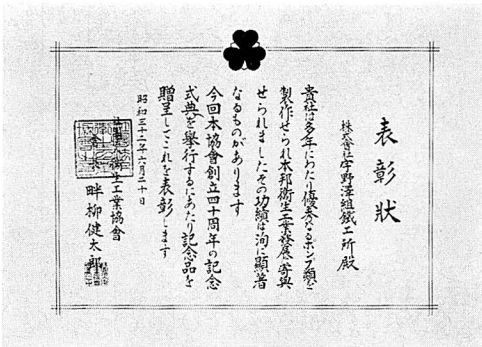 表彰狀
株式會社宇野澤組鐵工所殿
貴社は多年にわたり優秀なるポンプ類を
製作せられ本邦衛生工業發展に寄與
せられましたその功績は洵に顯著
なるものがあります
今回本協會創立四十周年の記念
式典を舉行するにあたり記念品を
贈呈してこれを表彰します
昭和三十二年六月二十日
社團法人衛生工業協會
會長 畔柳健太郎